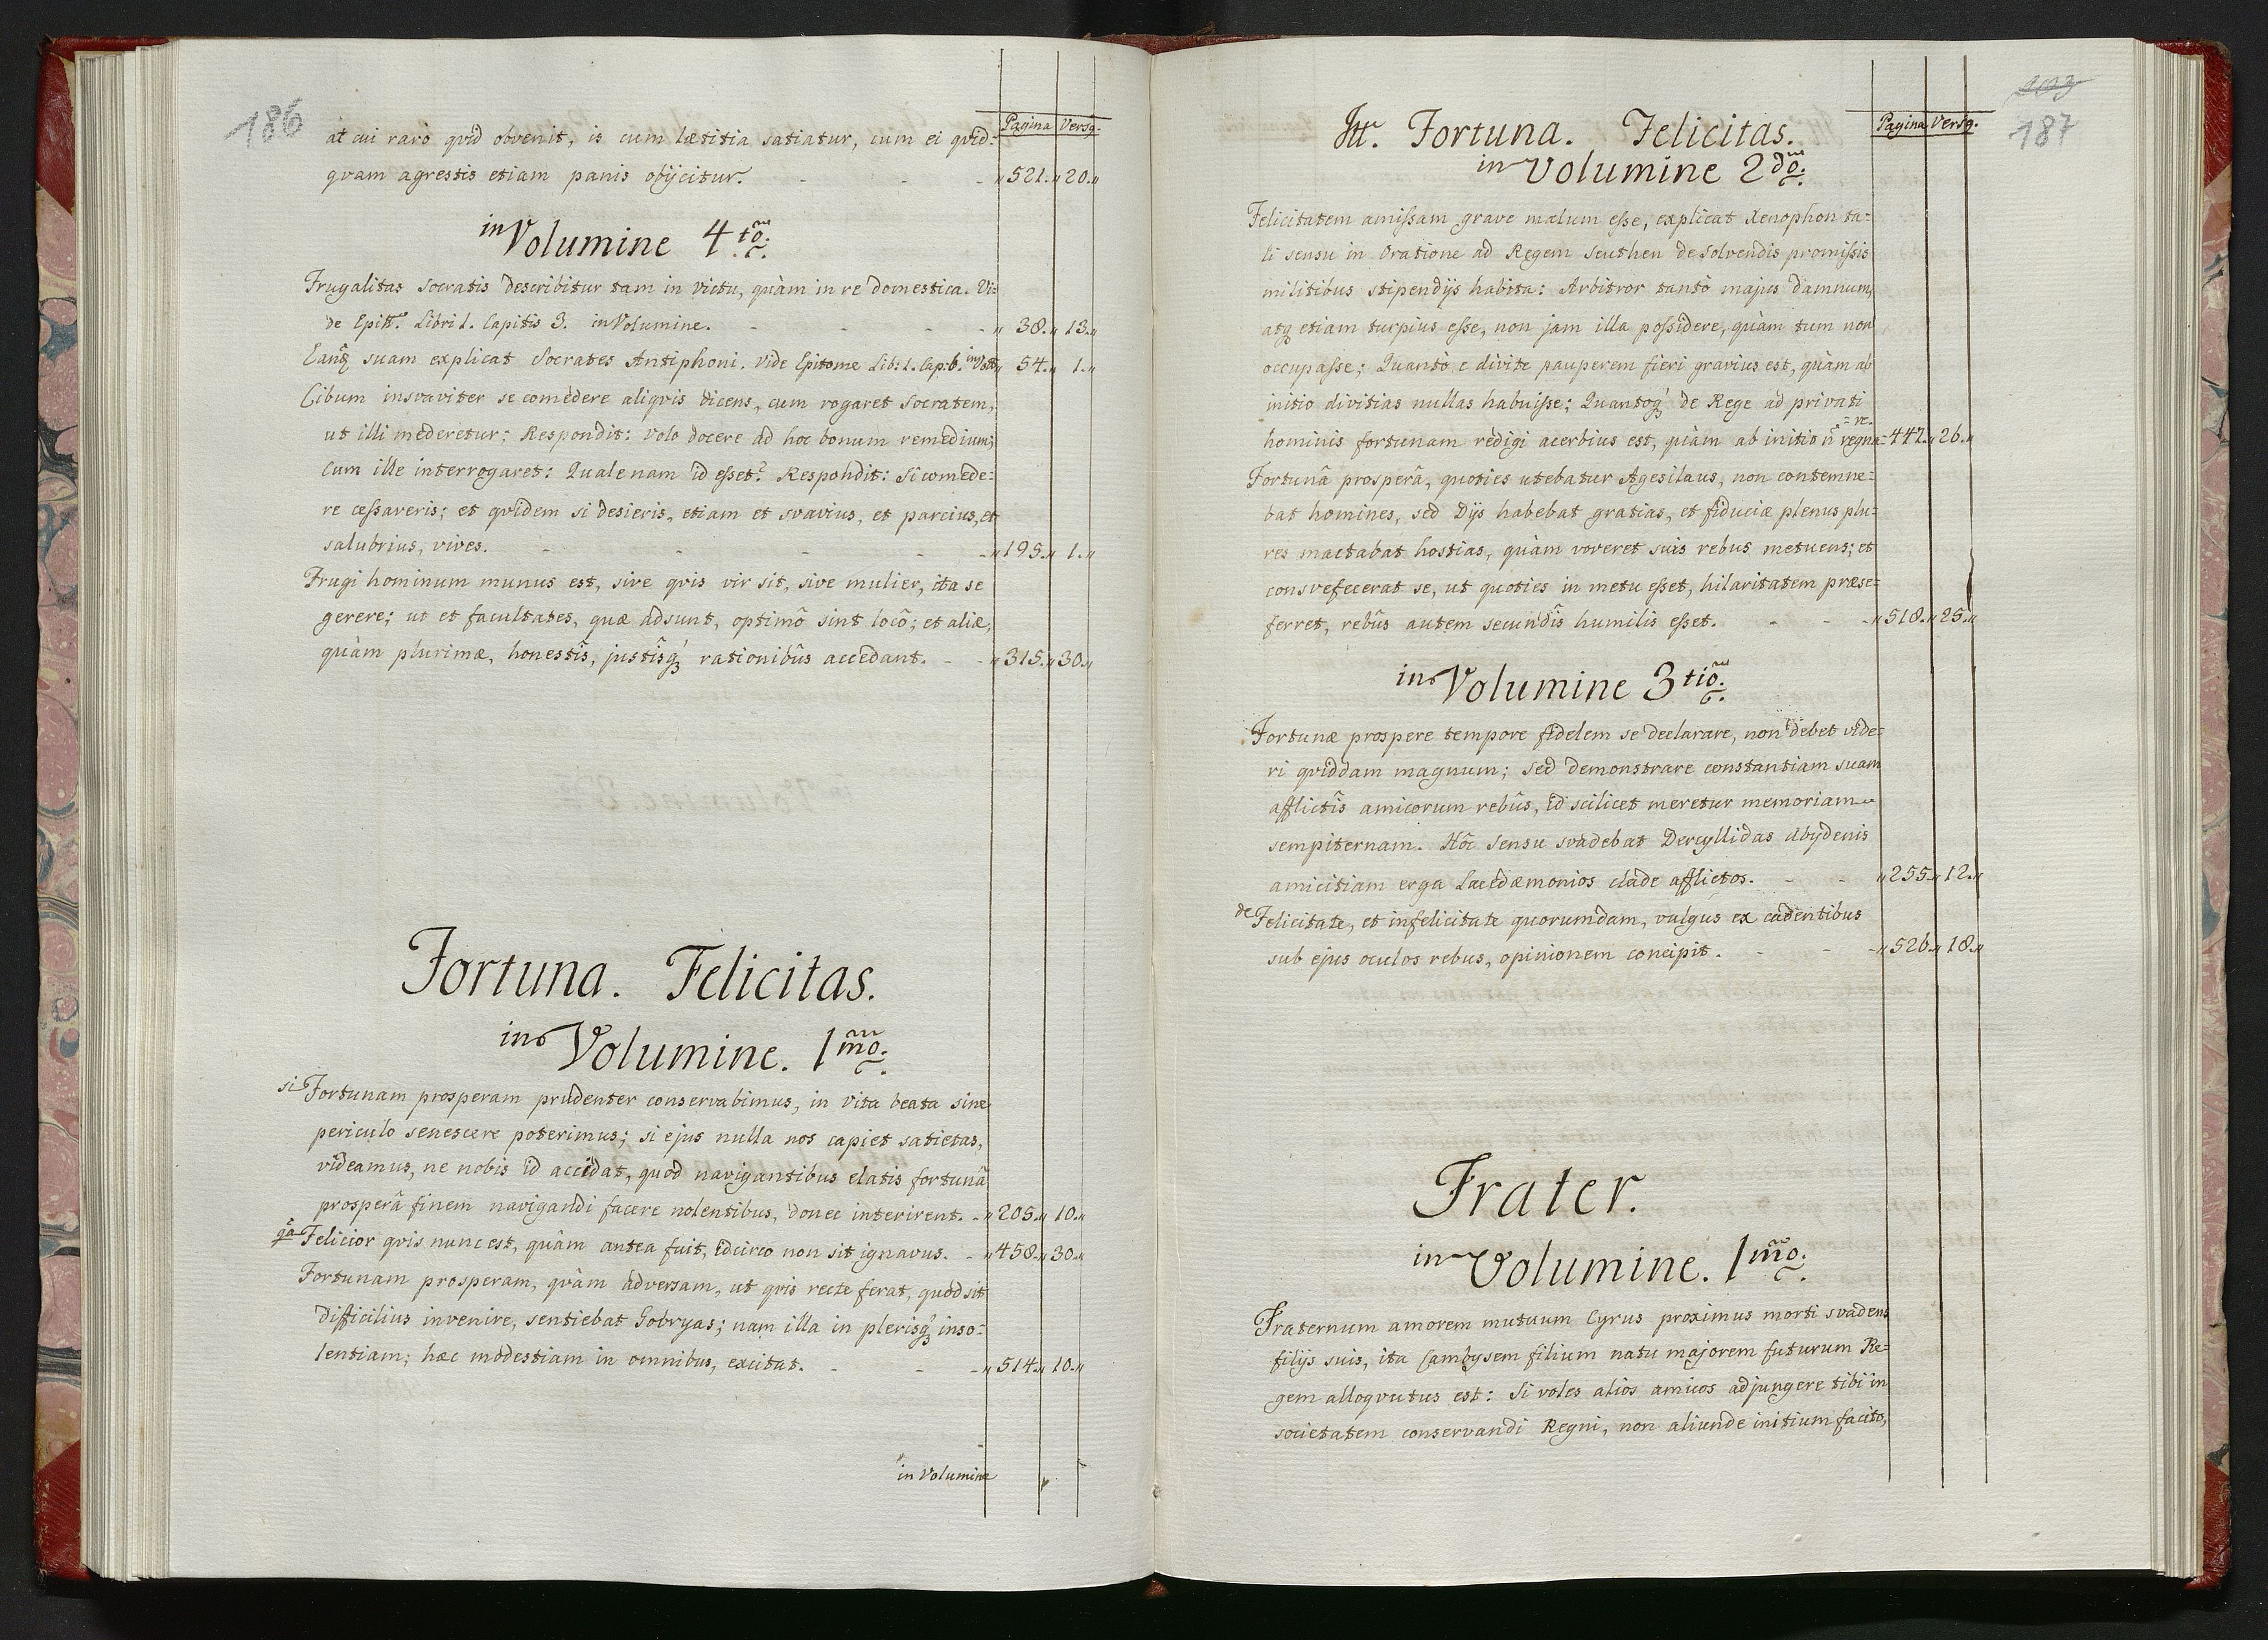 186
Pagina Versq.
at cui rarò qvid obvenit, is cum lætitia satiatur, cum ei qvid-
qvam agrestis etiam panis obijcitur. - - - „521.„20.„
in Volumine 4.to.
Frugalitas Socratis describitur tam in victu, qvàm in re domestica. Vi-
de Epitte. Libri 1. Capitis 3. in Volumine. - - - - „38.„13.„
Eanq suam explicat Socrates Antiphoni. Vide Epitome Lib: 1. Cap: 6. in Vol. „54.„1.„
Cibum insvaviter se comedere aliqvis dicens, cum rogaret Socratem,
ut illi mederetur; Respondit: Volo docere ad hoc bonum remedium;
Cum ille interrogaret: Qualenam id esset? Respondit: Si comede-
re cessareris; et qvidem si desieris, etiam et svavius, et parcius, et
salubrius, vives. - - - - - „195.„1.„
Frugi hominum munus est, sive qvis vir sit, sive mulier, ita se
gerere; ut et facultates, quæ adsunt, optimô sint locô; et aliæ,
quàm plurimæ, honestîs, justîsq rationibûs accedant. - - „315.„30.„
Fortuna. Felicitas.
in Volumine. 1mo.
si Fortunam prosperam prudenter conservabimus, in vita beata sine
periculo senescere poterimus; si ejus nulla nos capiet satietas,
videamus, ne nobis id accidat, quod navigantibus elatis fortunâ
prosperâ finem navigandi facere nolentibus, donec interirent. - „205.„10.„
qa Felicior qvis nunc est, quàm antea fuit, idcirco non sit ignavus. - „458.„30.„
Fortunam prosperam, qvàm adversam, ut qvis recte ferat, quod sit
difficilius invenire, sentiebat Gobryas; nam illa in plerisq inso-
lentiam; hæc modestiam in omnibus, excitat. - - - „514.„10.„
in Volumine
203
187
Pagina Versq.
Itr. Fortuna. Felicitas.
in Volumine 2do.
Felicitatem amissam grave malum esse, explicat Xenophon ta-
li sensu in Oratione ad Regem Seuthen de solvendis promissis
militibus stipendijs habita: Arbitror tantò majus damnum,
atq etiam turpius esse, non jam illa possidere, quàm tum non
occupasse; Quantò e divite pauperem fieri gravius est, quàm ab
initio divitias nullas habuisse; Quantoq de Rege ad privati
hominis fortunam redigi acerbius est, quàm ab initio ñ regna- „447.„26.„
=re.
Fortunâ prosperâ, quoties utebatur Agesilaus, non contemne-
bat homines, sed Dijs habebat gratias, et fiduciæ plenus plu-
res mactabat hostias, quàm voveret suis rebus metuens; et
consvefecerat se, ut quoties in metu esset, hilaritatem præse-
ferret, rebûs autem secundîs humilis esset. - - - „518.„25.„
in Volumine 3tio.
Fortunæ prospere tempore fidelem se declarare, non debet vide-
ri qviddam magnum; sed demonstrare constantiam suam
afflictîs amicorum rebûs, id scilicet meretur memoriam
sempiternam. Hôc sensu svadebat Dercyllidas Abydenis
amicitiam erga Lacedæmonios clade afflictos. - - „255.„12.„
de Felicitate, et infelicitate quorumdam, vulgus ex cadentibus
sub ejus oculos rebus, opinionem concipit. - - - „526.„18.„
Frater.
in Volumine. 1mo.
Fraternum amorem mutuum Cyrus proximus morti svadens
filijs suis, ita Cambysem filium natu majorem futurum Re-
gem alloqvutus est: Si voles alios amicos adjungere tibi in
societatem conservandi Regni, non aliunde initium facito,